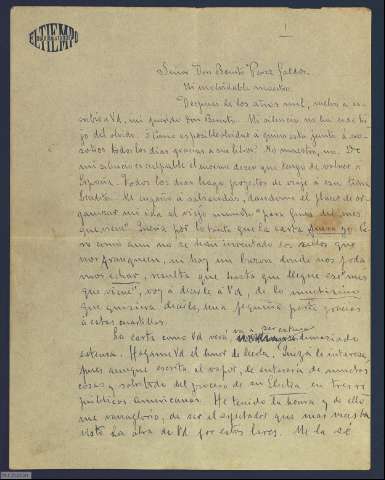 EL TIEMPO
1
Señor Don Benito Perez Galdos.
Mi inolvidable maestro:
Despues de los años mil, vuelvo a es-
cribir a Vd, mi querido Don Benito. Mi silencio no ha sido hi-
jo del olvido. ¿Como es posible olvidar a quien está junto á no-
sotros todos los dias gracias a sus libros? No maestro, no. De
mi silencio es culpable el enorme deseo que tengo de volver a
España. Todos los dias hago proyectos de viaje á esa tierra
bendita. Me engaño a sabiendas, dandome el placer de or-
ganizar mi ida al viejo mundo "para fines del mes
que viene". Queria por lo tanto que la carta fuera yo. Pe-
ro como aun no se han inventado los sellos que
nos franqueen, ni hay un buzon donde nos poda-
mos echar, resulta que hasta que llegue ese "mes
que viene", voy á decirle á Vd, de lo muchisimo
que quisiera decirle, una pequeña parte gracias
á estas cuartillas.
La carta como Vd verá va á ser demasiado
extensa. Hagame Vd el honor de leerla. Quizá le interese,
pues aunque escrita al vapor, le enterará de muchas
cosas y sobre todo del proceso de su Electra en tres re-
públicas americanas. He tenido la honra y de ello
me vanaglorio, de ser el espectador que mas veces ha
visto la obra de Vd por estos lares. Me la sé